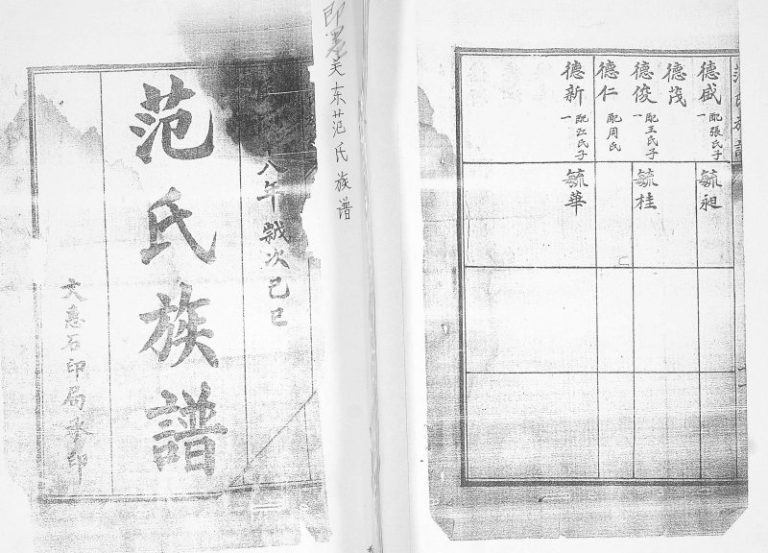 范氏族譜
八年歲次己巳
文惠石印局承印
即墨关东范氏族谱
范氏族譜
德盛 配張氏子一
毓昶
德茂
德俊 配王氏子一
毓桂
德仁 配周氏
德新 配江氏子一
毓華